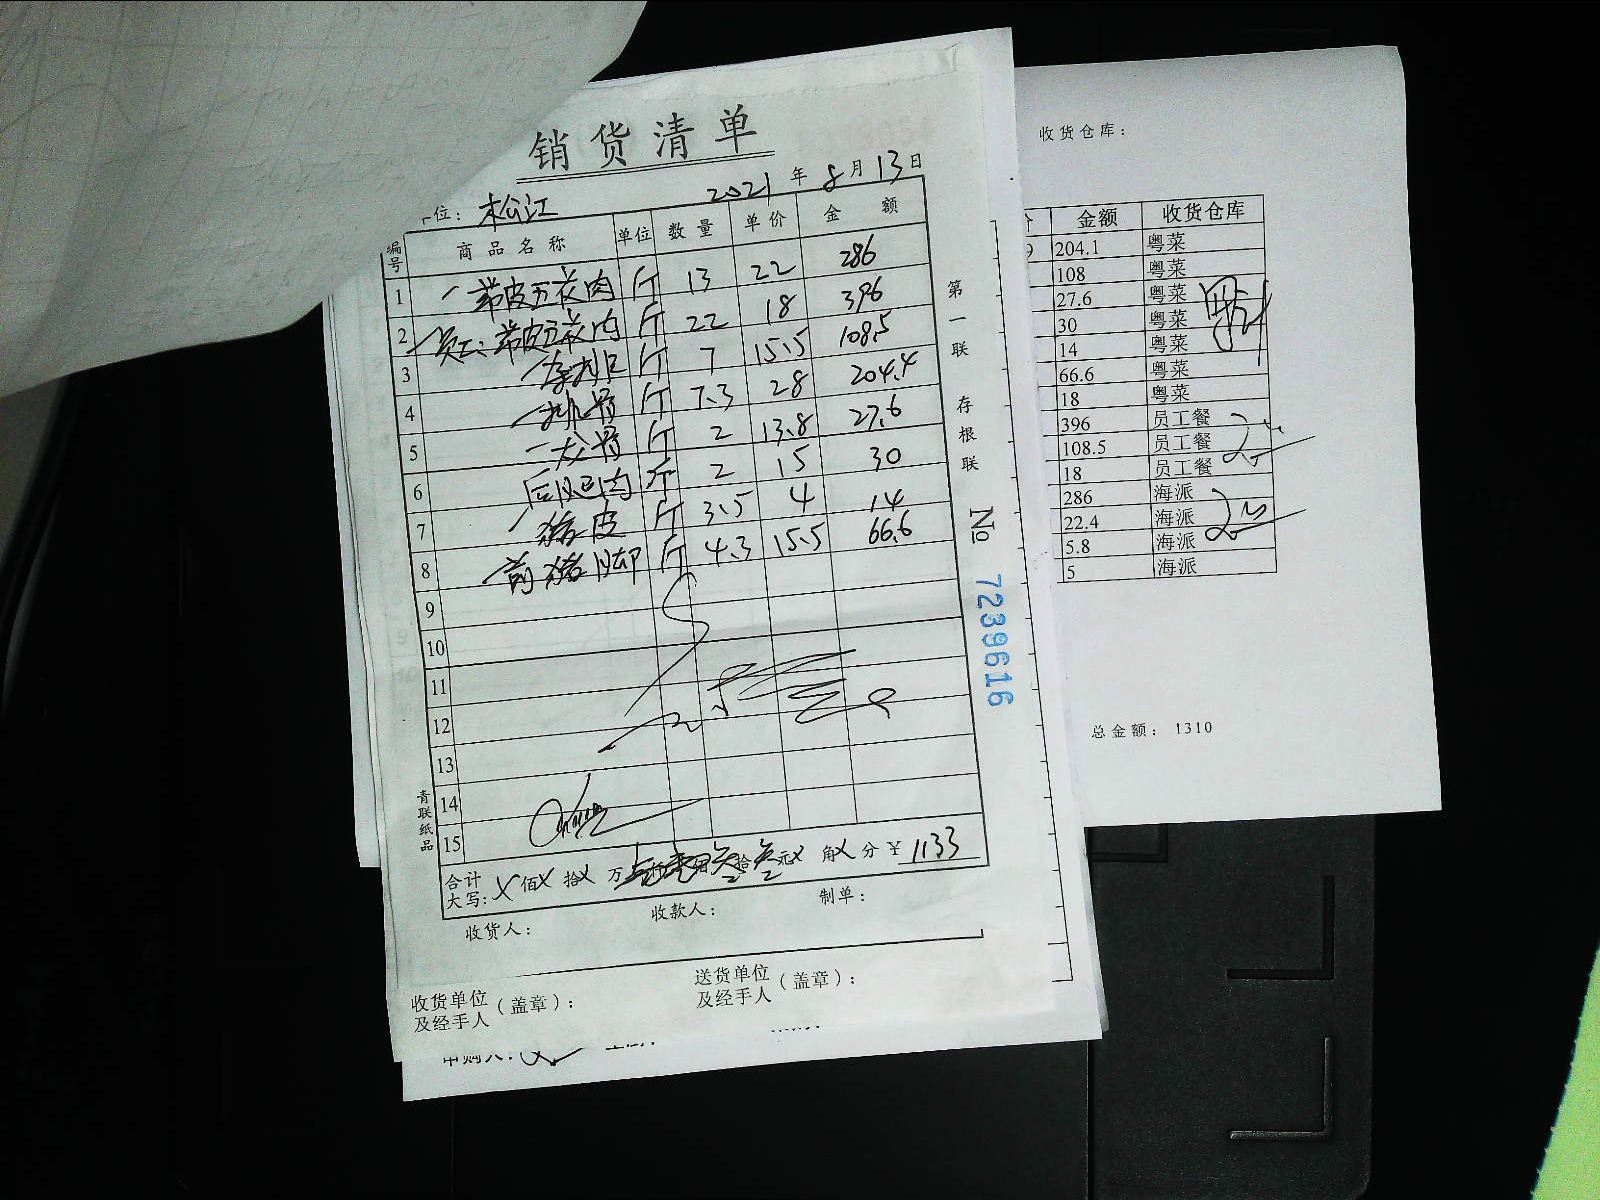 销货清单
位：松江 2021年8月13日
编号 商品名称 单位 数量 单价 金额
1 带皮五花肉 斤 13 22 286
2 员工：带皮五花肉 斤 22 18 396
3 斤 7 15.5 108.5
4 排骨 斤 7.3 28 204.4
5 龙骨 斤 2 13.8 27.6
6 后腿肉 斤 2 15 30
7 猪皮 斤 3.5 4 14
8 前猪脚 斤 4.3 15.5 66.6
9
10
11
12
13
14
15
合计大写：X佰X拾X万 仟 佰叁拾叁元X角X分 ¥1133
收货人： 收款人： 制单：
收货单位及经手人（盖章）： 送货单位及经手人（盖章）：
第一联 存根联
№ 7239616
青联纸品
收货仓库：
金额 收货仓库
204.1 粤菜
108 粤菜
27.6 粤菜
30 粤菜
14 粤菜
66.6 粤菜
18 粤菜
396 员工餐
108.5 员工餐
18 员工餐
286 海派
22.4 海派
5.8 海派
5 海派
总金额：1310